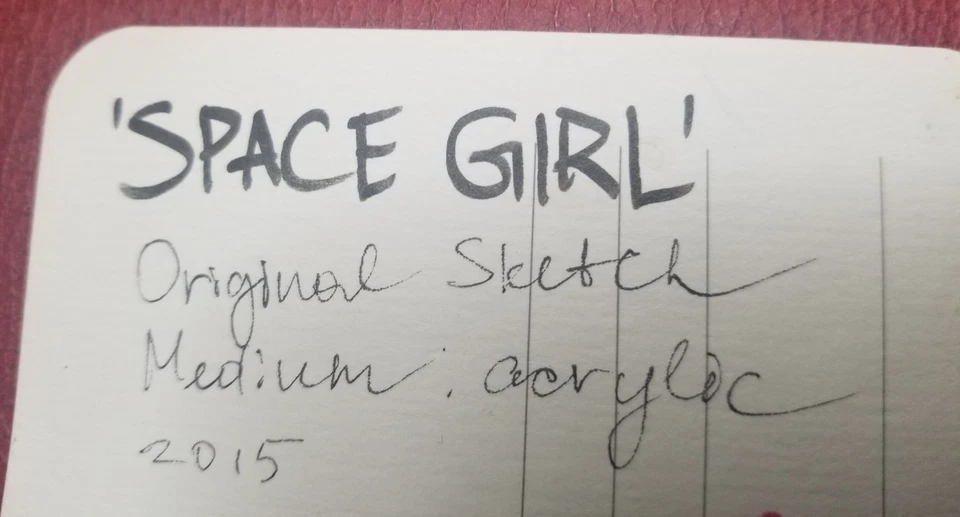 'SPACE GIRL'
Original Sketch
Medium: acrylic
2015